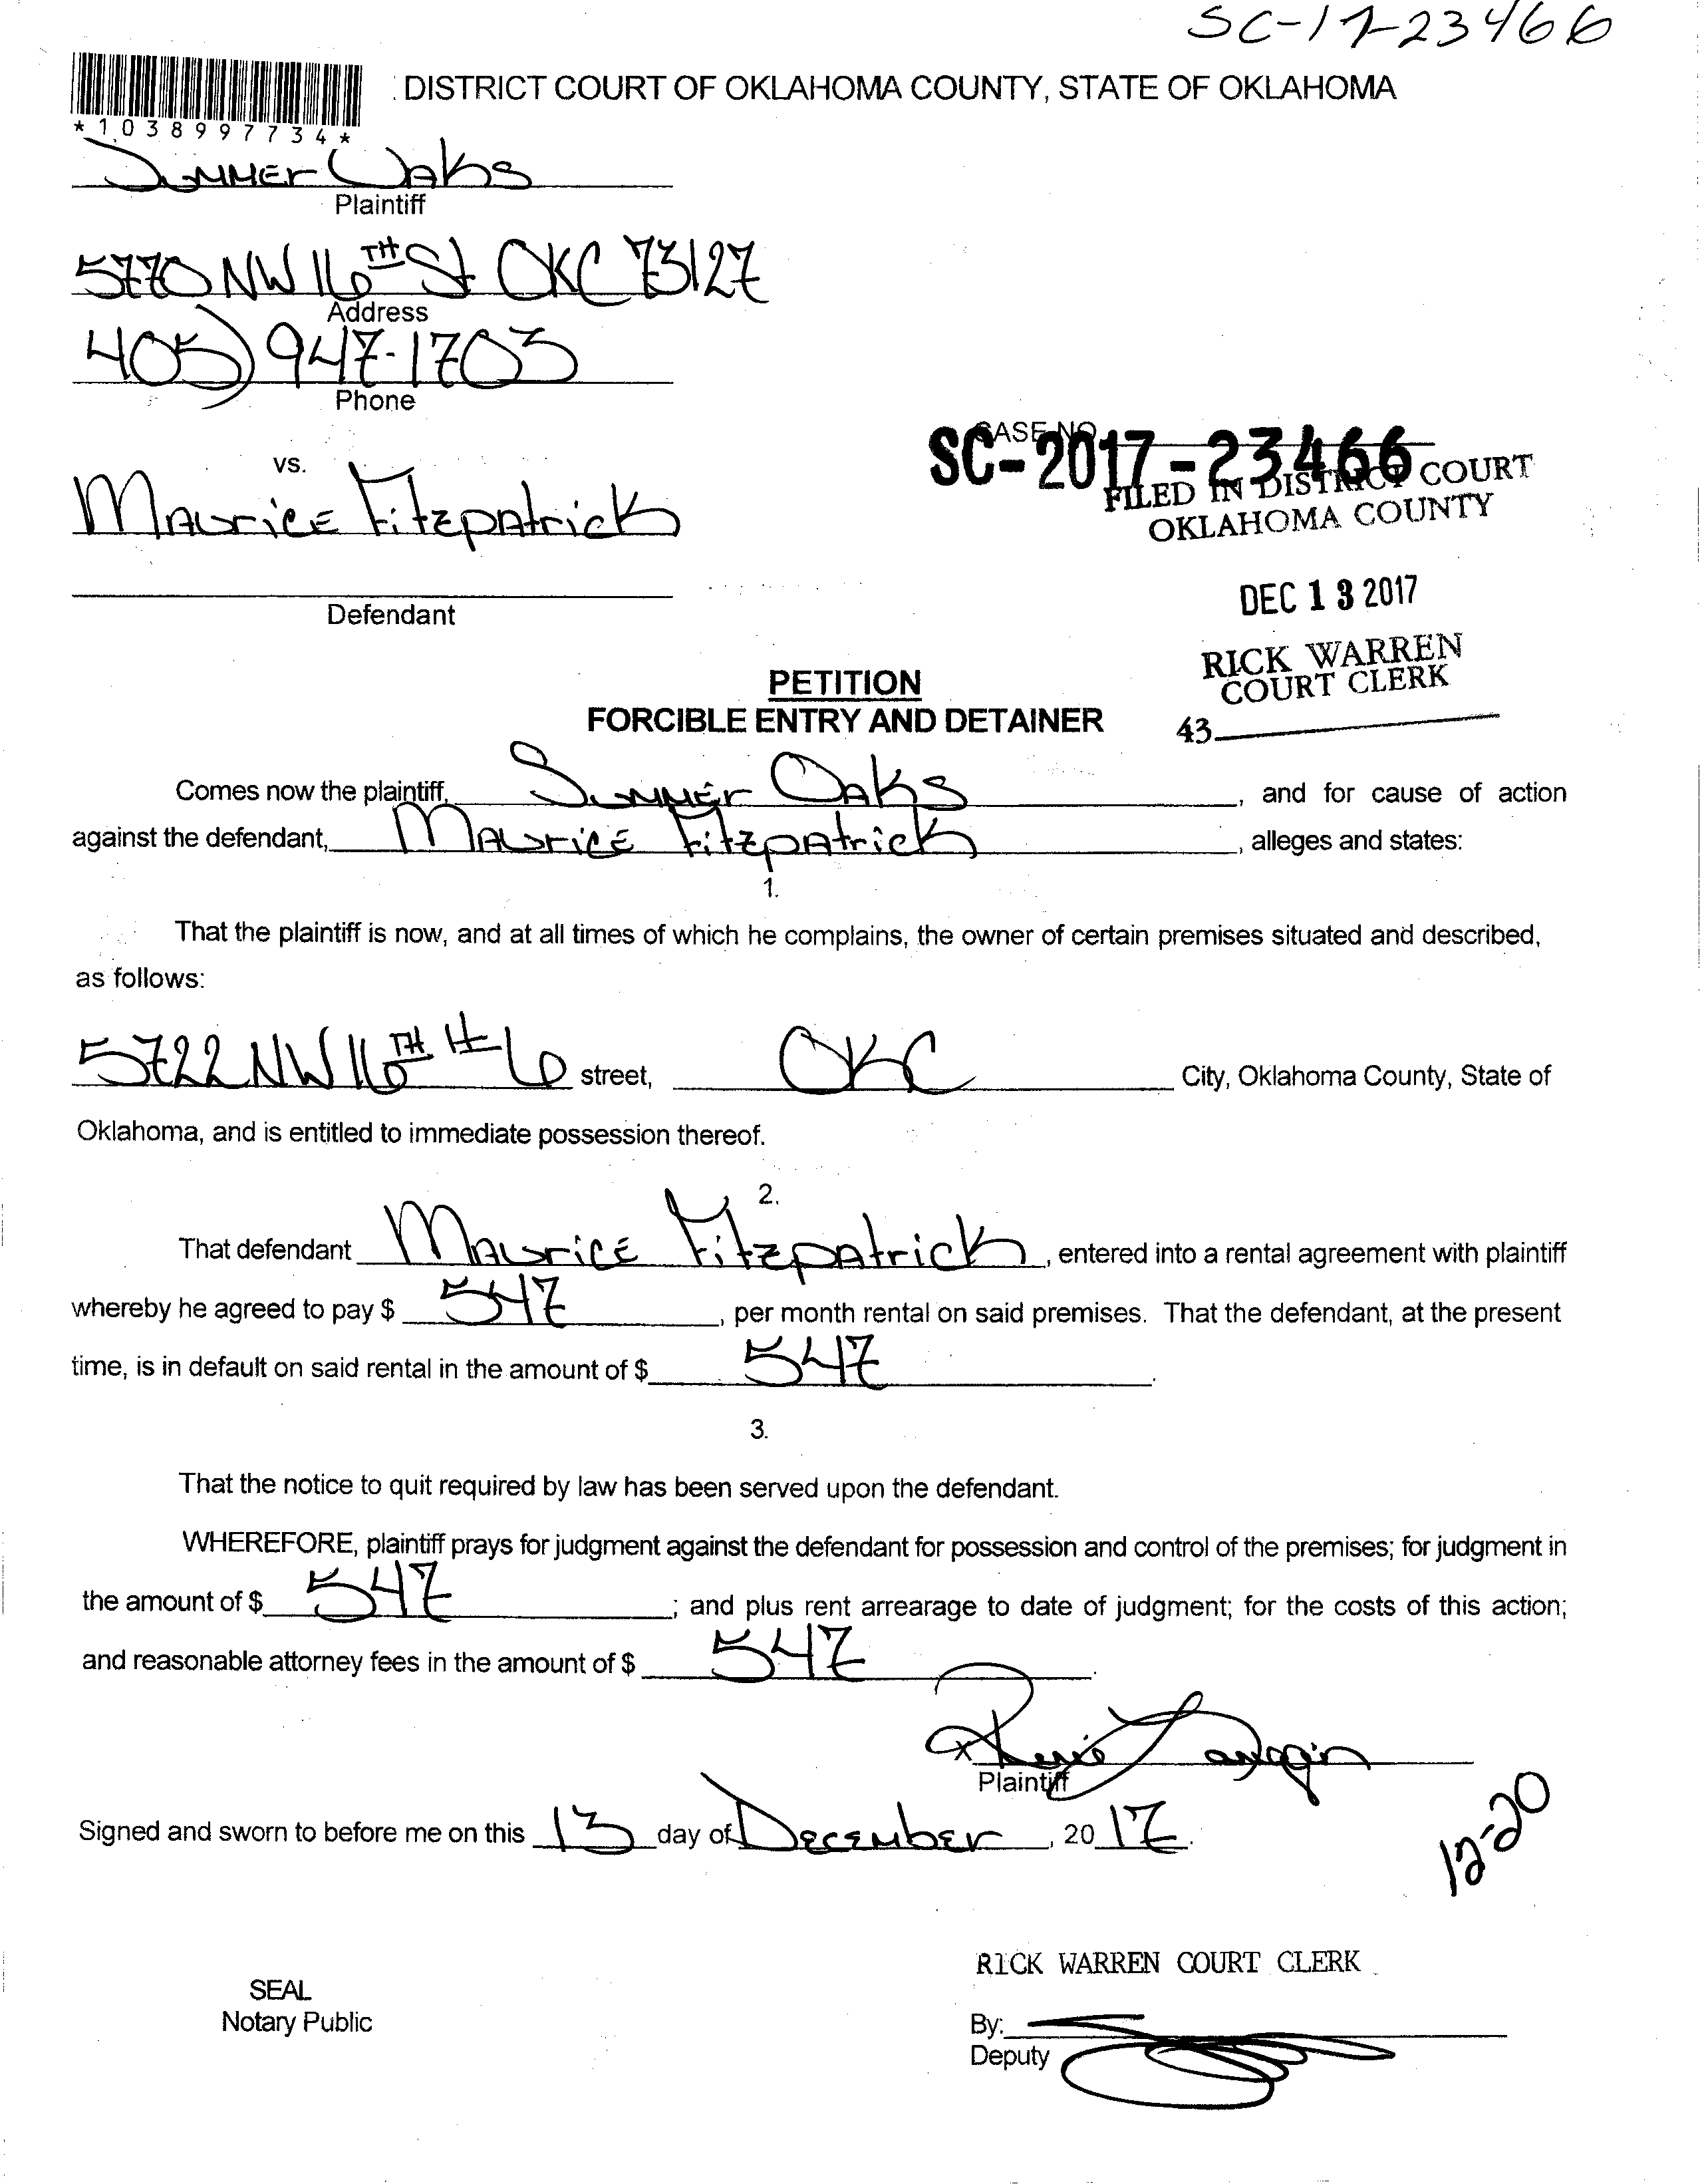 SC-17-23466
DISTRICT COURT OF OKLAHOMA COUNTY, STATE OF OKLAHOMA
*1038997734*
Summer Oaks
Plaintiff
5770 NW 16TH St OKC 73127
Address
405) 947-1703
Phone
vs.
CASE NO.
SC-2017-23466
Maurice Fitzpatrick
FILED IN DISTRICT COURT
OKLAHOMA COUNTY
Defendant
DEC 13 2017
RICK WARREN
COURT CLERK
43
PETITION
FORCIBLE ENTRY AND DETAINER
Comes now the plaintiff, Summer Oaks, and for cause of action
against the defendant, Maurice Fitzpatrick, alleges and states:
1.
That the plaintiff is now, and at all times of which he complains, the owner of certain premises situated and described,
as follows:
5722 NW 16TH #6 street, OKC City, Oklahoma County, State of
Oklahoma, and is entitled to immediate possession thereof.
2.
That defendant Maurice Fitzpatrick, entered into a rental agreement with plaintiff
whereby he agreed to pay $ 547, per month rental on said premises. That the defendant, at the present
time, is in default on said rental in the amount of $ 547.
3.
That the notice to quit required by law has been served upon the defendant.
WHEREFORE, plaintiff prays for judgment against the defendant for possession and control of the premises; for judgment in
the amount of $ 547; and plus rent arrearage to date of judgment; for the costs of this action;
and reasonable attorney fees in the amount of $ 547.
x
Plaintiff
Signed and sworn to before me on this 13 day of December, 2017.
12-20
RICK WARREN COURT CLERK
SEAL
Notary Public
By:
Deputy